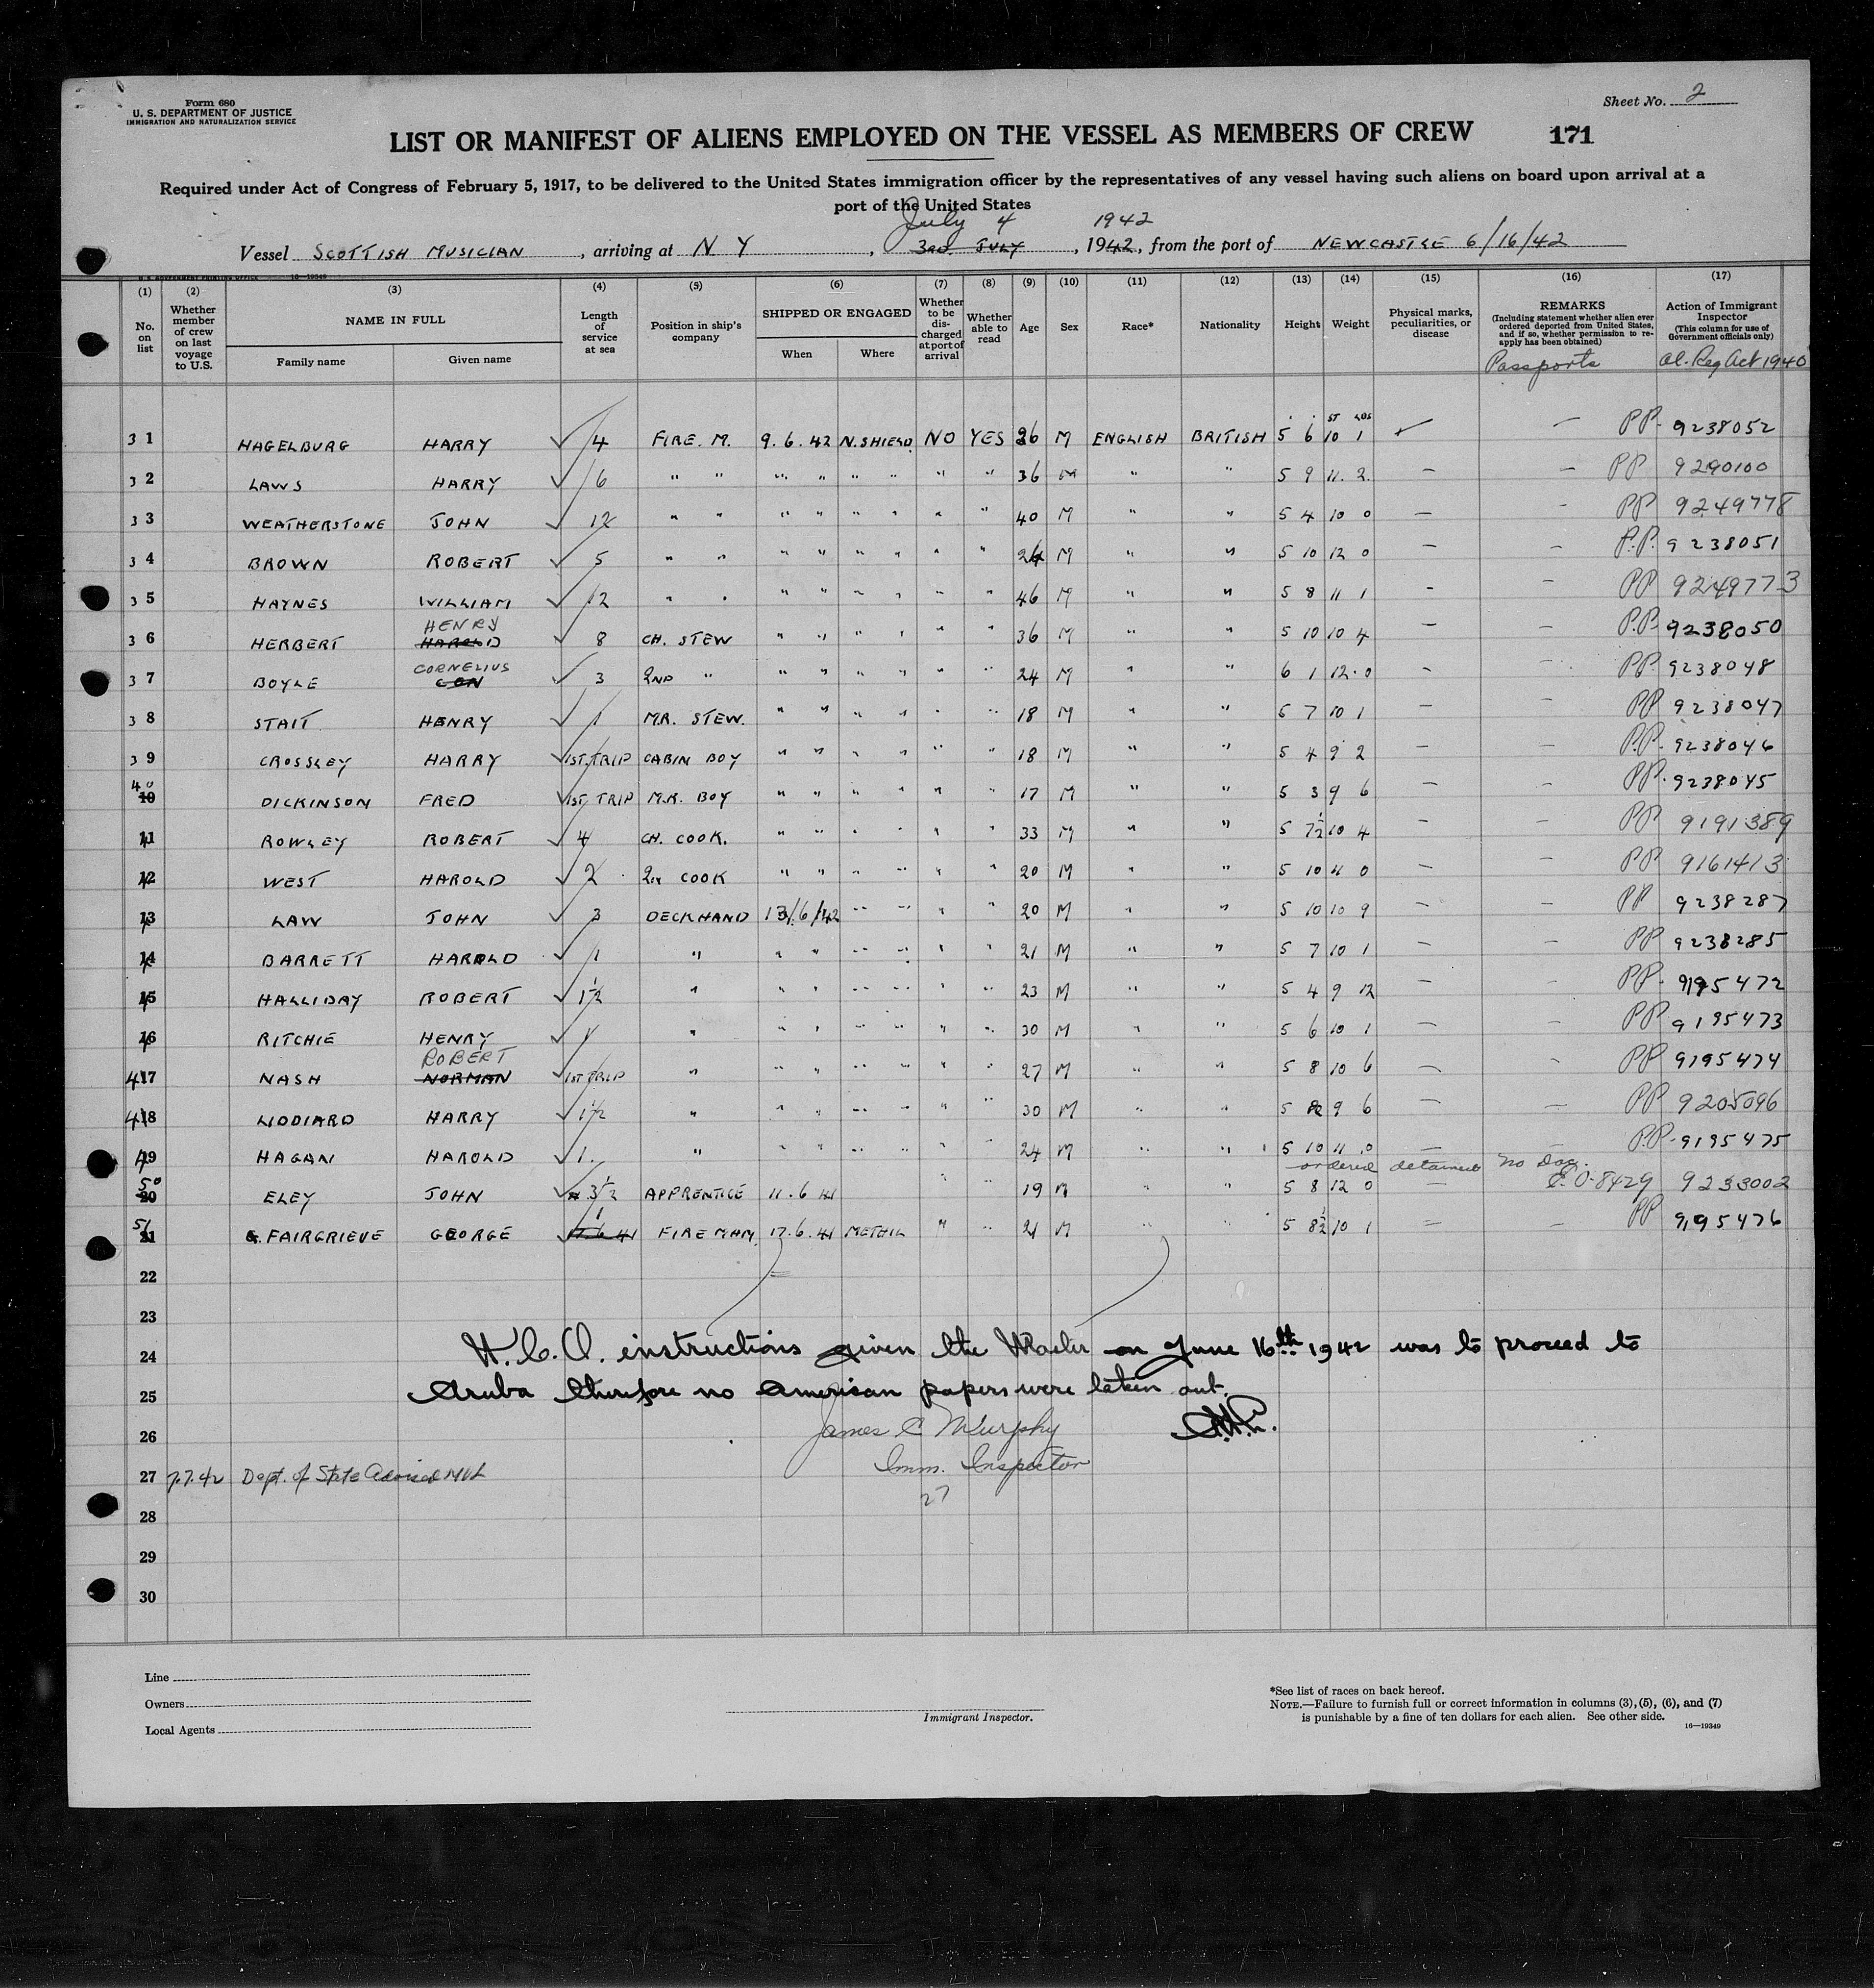 Form 680
U. S. DEPARTMENT OF JUSTICE
IMMIGRATION AND NATURALIZATION SERVICE
Sheet No. 2
LIST OR MANIFEST OF ALIENS EMPLOYED ON THE VESSEL AS MEMBERS OF CREW 171
Required under Act of Congress of February 5, 1917, to be delivered to the United States immigration officer by the representatives of any vessel having such aliens on board upon arrival at a
port of the United States
July 4 1942
Vessel SCOTTISH MUSICIAN, arriving at N Y, 3RD JULY, 1942, from the port of NEWCASTLE 6/16/42
U. S. GOVERNMENT PRINTING OFFICE 16—19349
(1) (2) (3) (4) (5) (6) (7) (8) (9) (10) (11) (12) (13) (14) (15) (16) (17)
No. on list
Whether member of crew on last voyage to U.S.
NAME IN FULL
Family name Given name
Length of service at sea
Position in ship's company
SHIPPED OR ENGAGED
When Where
Whether to be discharged at port of arrival
Whether able to read
Age Sex Race* Nationality Height Weight
Physical marks, peculiarities, or disease
REMARKS
(Including statement whether alien ever ordered deported from United States, and if so, whether permission to reapply has been obtained)
Passports
Action of Immigrant Inspector
(This column for use of Government officials only)
Al. Reg Act 1940
ST LBS
3 1 HAGELBURG HARRY 4 FIRE. M. 9.6.42 N. SHIELD. NO YES 26 M ENGLISH BRITISH 5 6 10 1 — PP. 9238052
3 2 LAWS HARRY 6 " " " " " " " " 36 M " " 5 9 11. 2. — — PP 9290100
3 3 WEATHERSTONE JOHN 12 " " " " " " " " 40 M " " 5 4 10 0 — — PP 9249778
3 4 BROWN ROBERT 5 " " " " " " " " 24 M " " 5 10 12 0 — — P.P. 9238051
3 5 HAYNES WILLIAM 12 " " " " " " " " 46 M " " 5 8 11 1 — — PP 9249773
HENRY
3 6 HERBERT HAROLD 8 CH. STEW " " " " " " 36 M " " 5 10 10 4 — — P.P. 9238050
CORNELIUS
3 7 BOYLE CON 3 2ND " " " " " " " 24 M " " 6 1 12.0 — — PP. 9238048
3 8 STAIT HENRY 1 M.R. STEW. " " " " " " 18 M " " 5 7 10 1 — — PP 9238047
3 9 CROSSLEY HARRY 1ST TRIP CABIN BOY " " " " " " 18 M " " 5 4 9 2 — — P.P. 9238046
40
10 DICKINSON FRED 1ST TRIP M.R. BOY " " " " " " 17 M " " 5 3 9 6 — — PP. 9238045
11 ROWLEY ROBERT 4 CH. COOK. " " " " " " 33 M " " 5 7½ 10 4 — — PP 9191389
12 WEST HAROLD 2 2ND COOK " " " " " " 20 M " " 5 10 11 0 — — PP 9161413
13 LAW JOHN 3 DECKHAND 13/6/42 " " " " 20 M " " 5 10 10 9 — — PP 9238287
14 BARRETT HAROLD 1 " " " " " " " 21 M " " 5 7 10 1 — — PP 9238285
15 HALLIDAY ROBERT 1½ " " " " " " " 23 M " " 5 4 9 12 — — PP. 9195472
16 RITCHIE HENRY 1 " " " " " " " 30 M " " 5 6 10 1 — — PP 9195473
ROBERT
417 NASH NORMAN 1ST TRIP " " " " " " " 27 M " " 5 8 10 6 — — PP 9195474
418 LIDDIARD HARRY 1½ " " " " " " " 30 M " " 5 9 6 — — PP 9205096
49 HAGAN HAROLD 1. " " " " " " " 24 M " " 5 10 11.0 — — P.P. 9195475
ordered detained no Doc.
50
20 ELEY JOHN 3½ APPRENTICE 11.6.41 " " 19 M " " 5 8 12 0 — E.O. 8429 9233002
51
21 FAIRGRIEVE GEORGE 1 17.6.41 FIREMAN. 17.6.41 METHIL " " 21 M " " 5 8½ 10 1 — — PP 9195476
22
23
24 N.C.O. instructions given the Master on June 16th 1942 was to proceed to
25 Aruba therefore no American papers were taken out.
26 James C Murphy
27 7.7.42 Dept. of State Advised Imm. Inspector
27
28
29
30
Line
Owners
Local Agents
Immigrant Inspector.
*See list of races on back hereof.
NOTE.—Failure to furnish full or correct information in columns (3), (5), (6), and (7)
is punishable by a fine of ten dollars for each alien. See other side.
16—19349